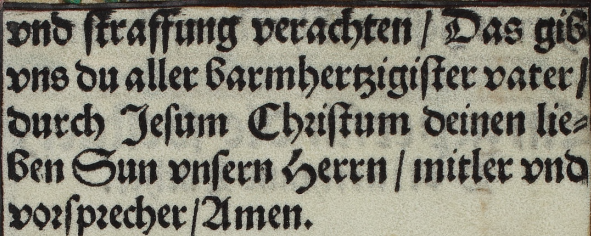 vnd straffung verachten / Das gib
vns du aller barmhertzigister vater /
durch Jesum Christum deinen lie⸗
ben Sun vnsern Herrn / mitler vnd
vorsprecher / Amen.